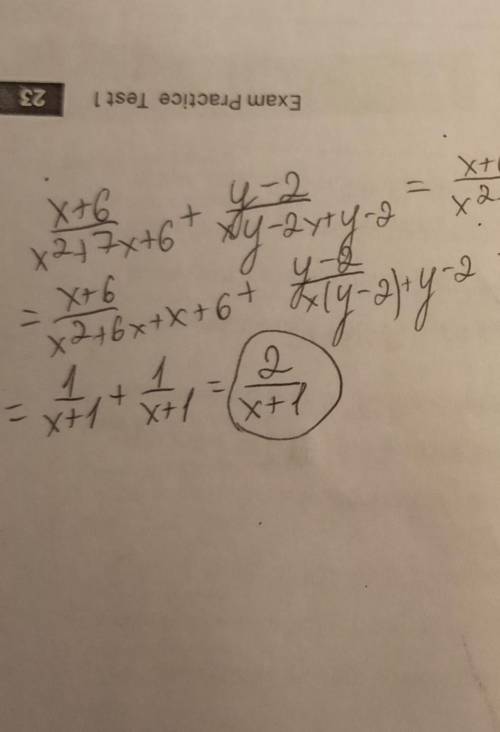 Exam Practice Test 1 23
(x+6)/(x²+7x+6) + (y-2)/(xy-2x+y-2) =
= (x+6)/(x²+6x+x+6) + (y-2)/(x(y-2)+y-2)
= 1/(x+1) + 1/(x+1) = 2/(x+1)